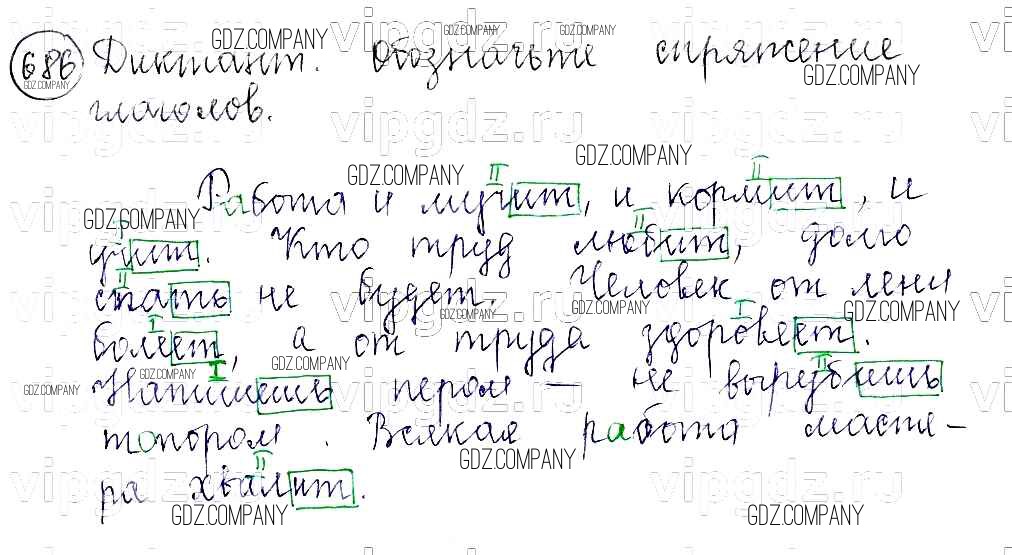 686 Диктант. Обозначьте спряжение
глаголов.
Работа и мучит, и кормит, и
учит. Кто труд любит, долго
спать не будет. Человек от лени
болеет, а от труда здоровеет.
Напишешь пером — не вырубишь
топором. Всякая работа масте-
ра хвалит.